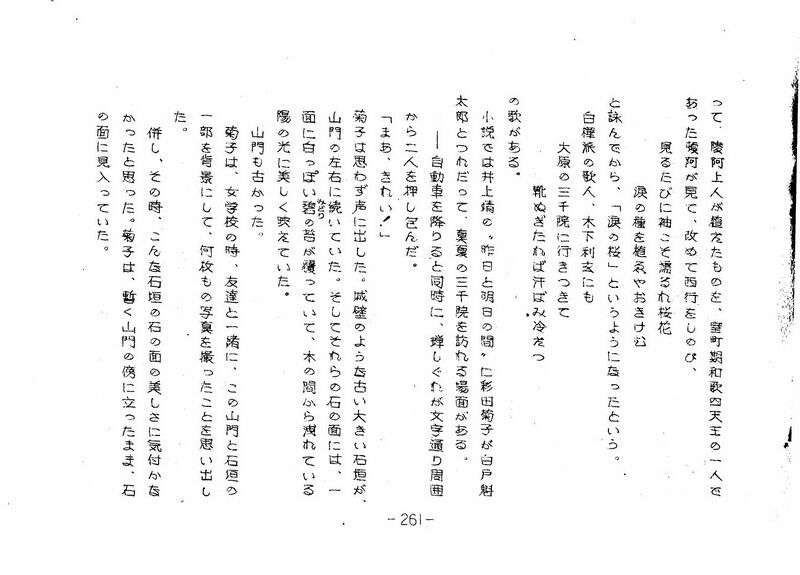 って、陵阿上人が植えたものを、室町期和歌四天王の一人で
あった陵阿が見て、改めて西行をしのび、
見るたびに袖こそ濡るれ桜花
涙の種を植ゑやおきけむ
と詠んでから、「涙の桜」というようになったという。
白樺派の歌人、木下利玄にも
大原の三千院に行きつきて
靴ぬぎたれば汗ばみ冷えつ
の歌がある。
小説では井上靖の〝昨日と明日の間〟に杉田菊子が白戸魁
太郎とつれだって、真夏の三千院を訪れる場面がある。
──自動車を降りると同時に、蝉しぐれが文字通り周囲
から二人を押し包んだ。
「まあ、きれい！」
菊子は思わず声に出した。城壁のような古い大きい石垣が、
山門の左右に続いていた。そしてそれらの石の面には、一
面に白っぽい碧みどりの苔が覆っていて、木の間から洩れている
陽の光に美しく映えていた。
山門も古かった。
菊子は、女学校の時、友達と一緒に、この山門と石垣の
一部を背景にして、何枚もの写真を撮ったことを思い出し
た。
併し、その時、こんな石垣の石の面の美しさに気付かな
かったと思った。菊子は、暫く山門の傍に立ったまま、石
の面に見入っていた。
-261-